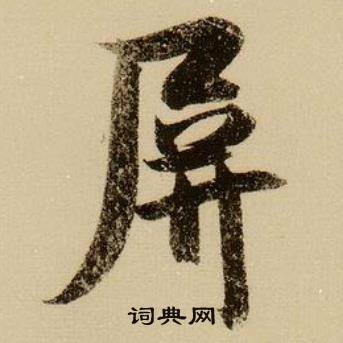 屏
词典网